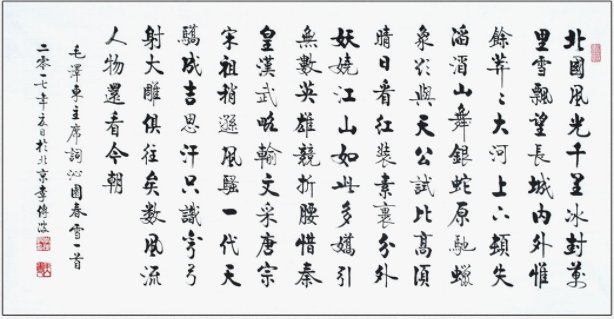 北國風光千里冰封萬
里雪飄望長城內外惟
餘莽々大河上下頓失
滔滔山舞銀蛇原馳蠟
象欲與天公試比高須
晴日看紅裝素裹分外
妖嬈江山如此多嬌引
無數英雄競折腰惜秦
皇漢武略輸文采唐宗
宋祖稍遜風騷一代天
驕成吉思汗只識彎弓
射大雕俱往矣数風流
人物還看今朝
毛澤東主席詞沁園春雪一首
二零一七年夏日於北京李傳波